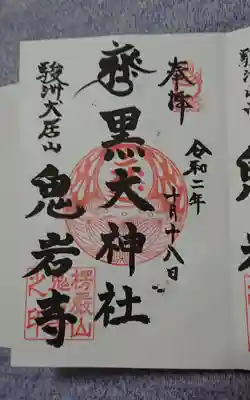 奉拝
令和二年
十月十八日
黒犬神社
駿州大居山
鬼岩寺
楞厳山
鬼
之印